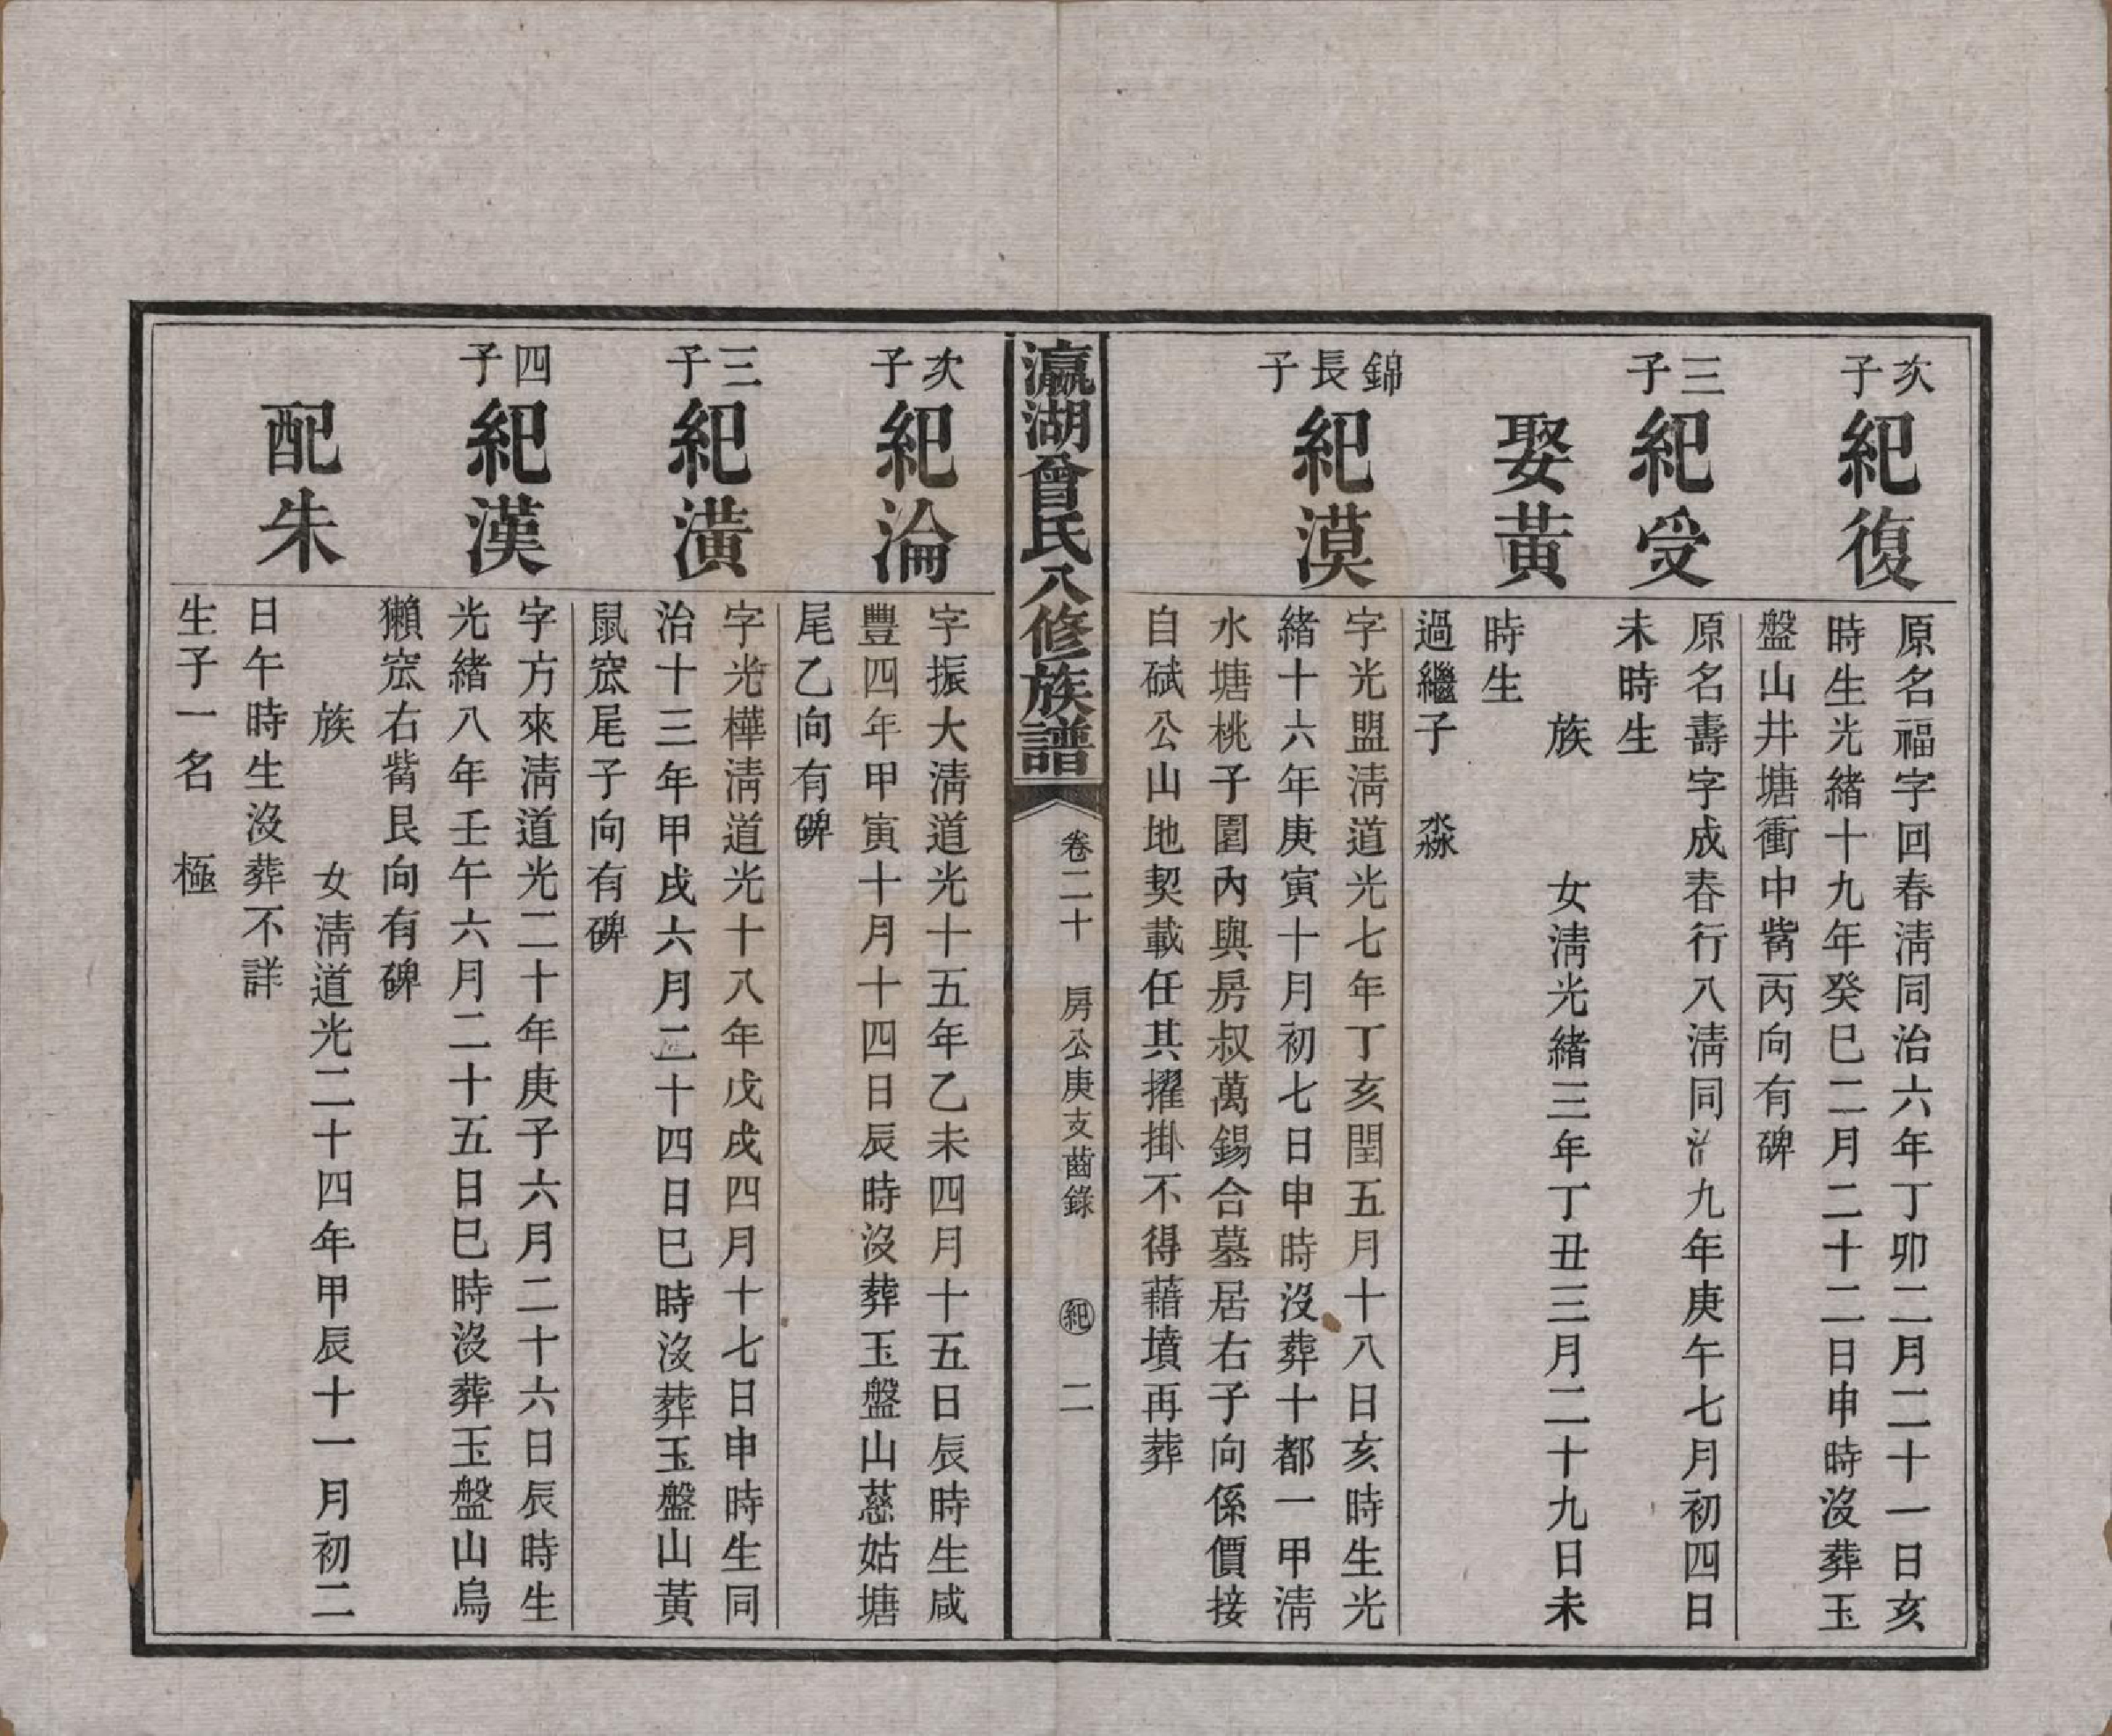 次子
紀復
原名福字回春清同治六年丁卯二月二十一日亥
時生光緒十九年癸巳二月二十二日申時沒葬玉
盤山井塘衝中嘴丙向有碑
三子
紀受
原名壽字成春行八清同治九年庚午七月初四日
未時生
娶黃
族 女清光緒三年丁丑三月二十九日未
時生
過繼子 淼
錦長子
紀漠
字光盟清道光七年丁亥閏五月十八日亥時生光
緒十六年庚寅十月初七日申時沒葬十都一甲清
水塘桃子園內與房叔萬錫合墓居右子向係價接
自斌公山地契載任其擢掛不得藉墳再葬
瀛湖曾氏八修族譜
卷二十 房公庚支齒錄 紀 二
次子
紀淪
字振大清道光十五年乙未四月十五日辰時生咸
豐四年甲寅十月十四日辰時沒葬玉盤山慈姑塘
尾乙向有碑
三子
紀潢
字光樺清道光十八年戊戌四月十七日申時生同
治十三年甲戌六月二十四日巳時沒葬玉盤山黃
鼠窊尾子向有碑
四子
紀漢
字方來清道光二十年庚子六月二十六日辰時生
光緒八年壬午六月二十五日巳時沒葬玉盤山烏
獺窊右嘴艮向有碑
配朱
族 女清道光二十四年甲辰十一月初二
日午時生沒葬不詳
生子一名 極